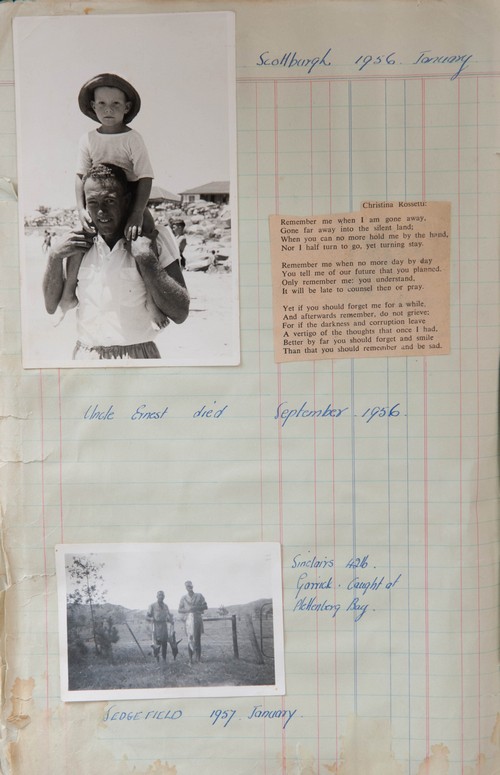 Scottburgh 1956. January
Christina Rossetti:
Remember me when I am gone away,
Gone far away into the silent land;
When you can no more hold me by the hand,
Nor I half turn to go, yet turning stay.
Remember me when no more day by day
You tell me of our future that you planned.
Only remember me; you understand,
It will be late to counsel then or pray.
Yet if you should forget me for a while,
And afterwards remember, do not grieve;
For if the darkness and corruption leave
A vertigo of the thoughts that once I had,
Better by far you should forget and smile
Than that you should remember and be sad.
Uncle Ernest died September 1956.
Sinclairs 42lb.
Garrick. Caught at
Plettenberg Bay.
SEDGEFIELD 1957. January.